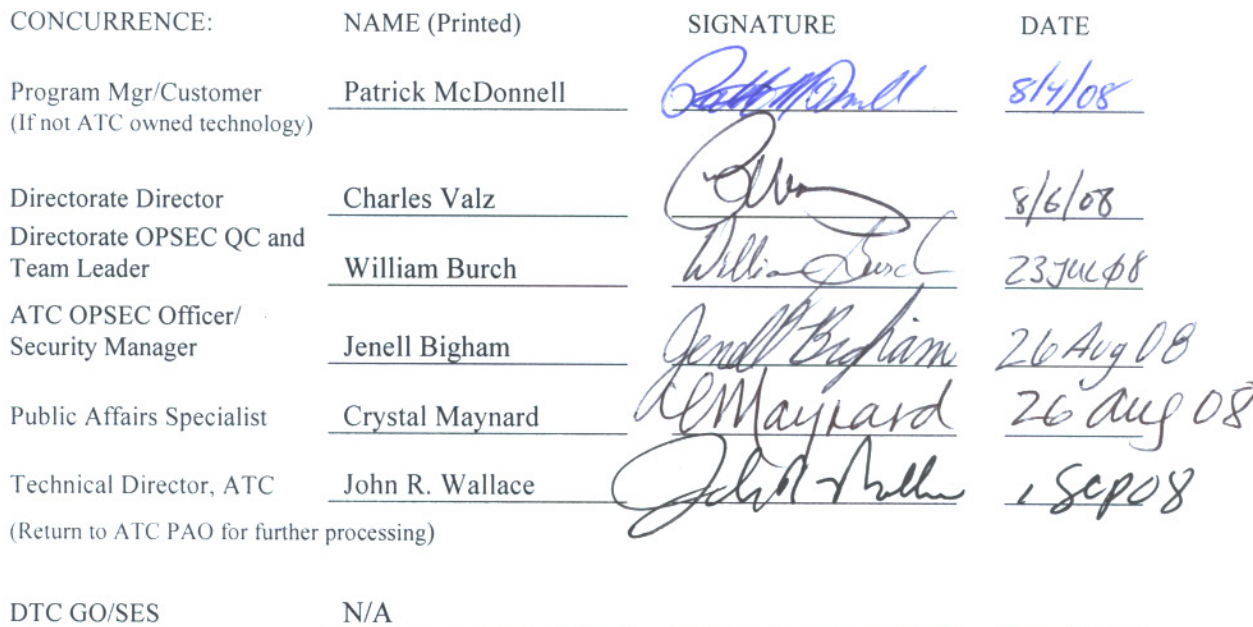 CONCURRENCE: NAME (Printed) SIGNATURE DATE
Program Mgr/Customer Patrick McDonnell 8/4/08
(If not ATC owned technology)
Directorate Director Charles Valz 8/6/08
Directorate OPSEC QC and
Team Leader William Burch William Burch 23 JUL 08
ATC OPSEC Officer/
Security Manager Jenell Bigham Jenell Bigham 26 Aug 08
Public Affairs Specialist Crystal Maynard CMaynard 26 Aug 08
Technical Director, ATC John R. Wallace John R Wallace 1 Sep 08
(Return to ATC PAO for further processing)
DTC GO/SES N/A